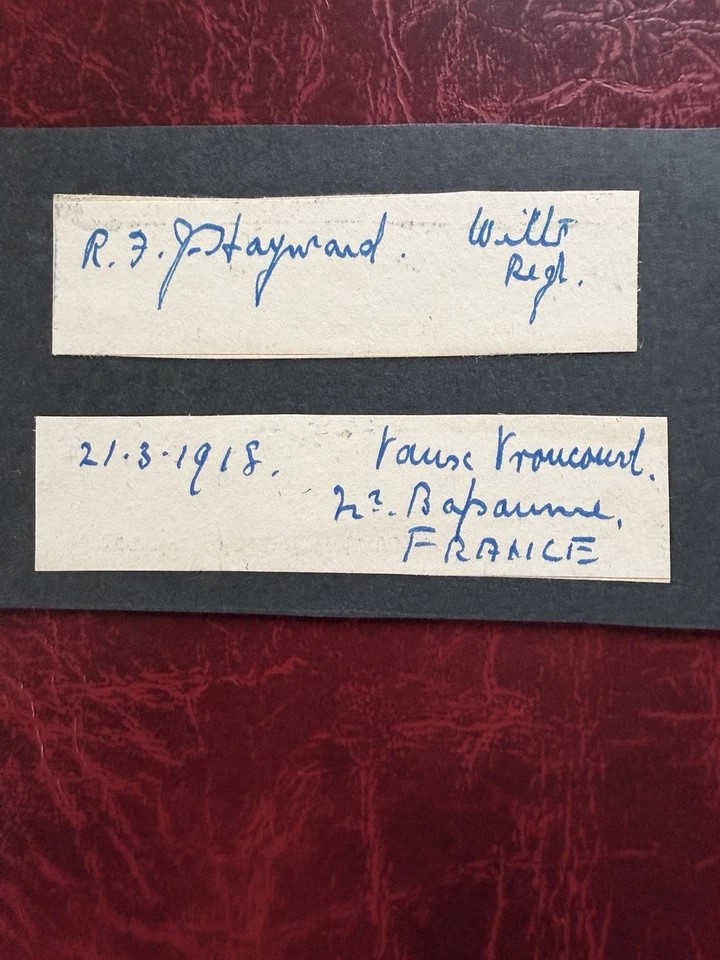 R. F. J. Hayward. Wilts
Regt.
21.3.1918. Vaux Vroucourt.
Nr. Bapaume,
FRANCE